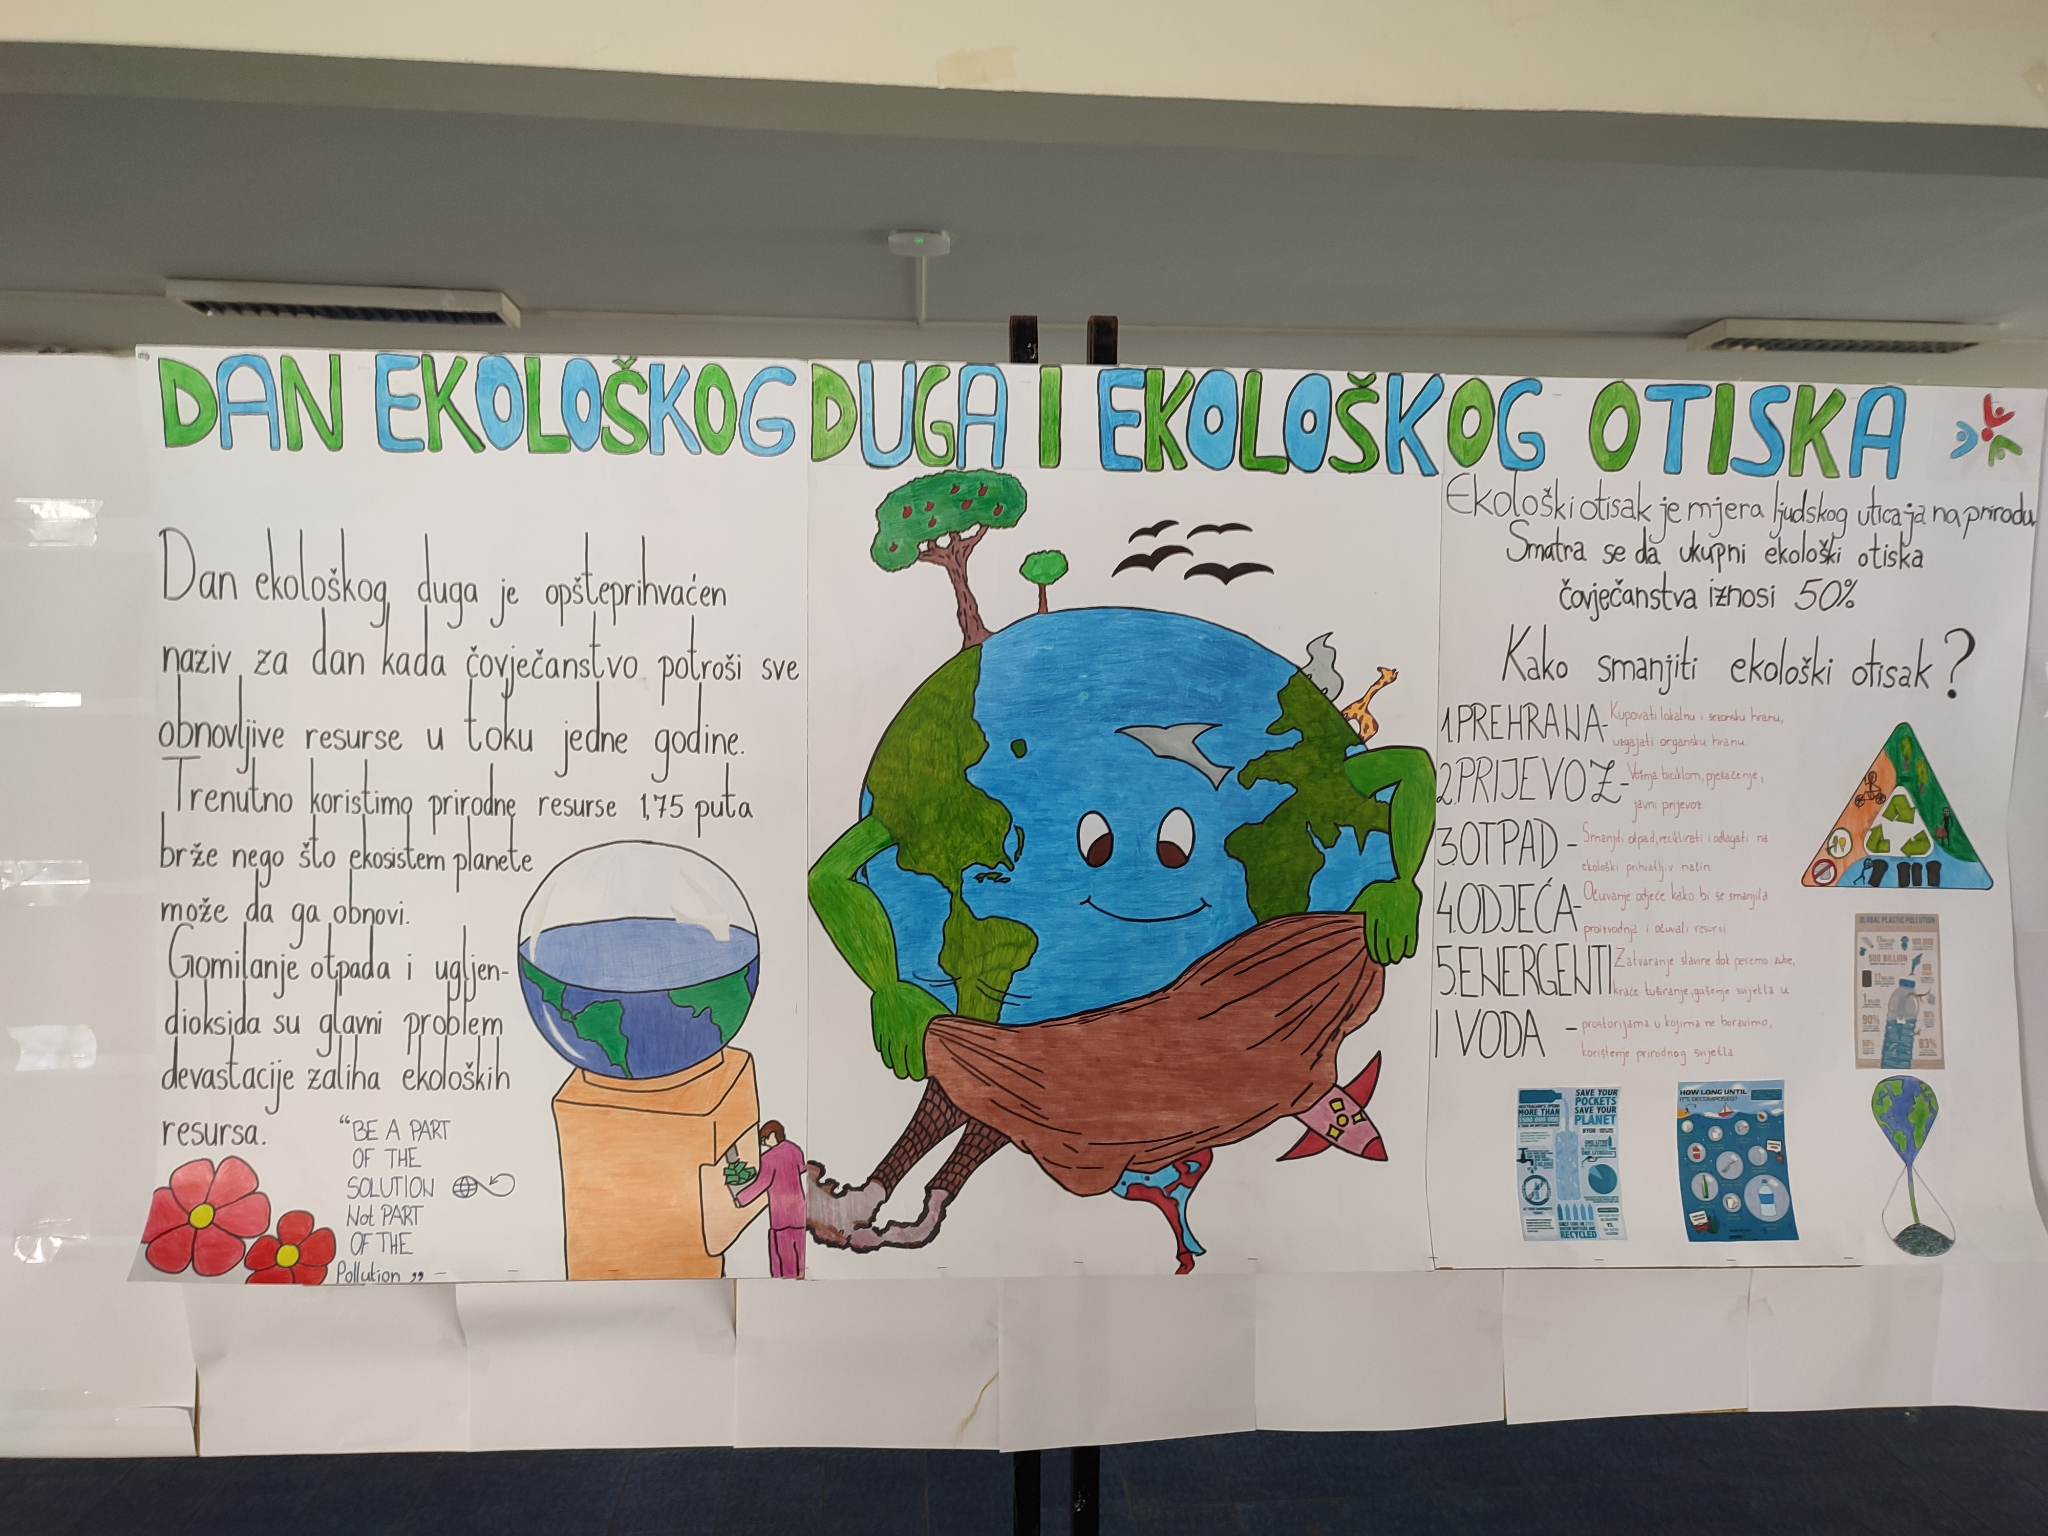 DAN EKOLOŠKOG DUGA I EKOLOŠKOG OTISKA
Dan ekološkog duga je opšteprihvaćen
naziv za dan kada čovječanstvo potroši sve
obnovljive resurse u toku jedne godine.
Trenutno koristimo prirodne resurse 1,75 puta
brže nego što ekosistem planete
može da ga obnovi.
Gomilanje otpada i ugljen-
dioksida su glavni problem
devastacije zaliha ekoloških
resursa.
“BE A PART
OF THE
SOLUTION
Not PART
OF THE
Pollution „
Ekološki otisak je mjera ljudskog uticaja na prirodu
Smatra se da ukupni ekološki otiska
čovječanstva iznosi 50%
Kako smanjiti ekološki otisak?
1.PREHRANA- Kupovati lokalnu i sezonsku hranu,
uzgajati organsku hranu.
2.PRIJEVOZ- Vožnja biciklom, pješačenje,
javni prijevoz
3.OTPAD - Smanjiti otpad, reciklirati i odlagati na
ekološki prihvatljiv način
4.ODJEĆA- Očuvanje odjeće kako bi se smanjila
proizvodnja i očuvali resursi
5.ENERGENTI Zatvaranje slavine dok peremo zube,
kraće tuširanje, gašenje svijetla u
I VODA - prostorijama u kojima ne boravimo,
korištenje prirodnog svijetla
GLOBAL PLASTIC POLLUTION
500 BILLION
90%
83%
SAVE YOUR
POCKETS
SAVE YOUR
PLANET
MORE THAN
RECYCLED
HOW LONG UNTIL
IT'S DECOMPOSED?